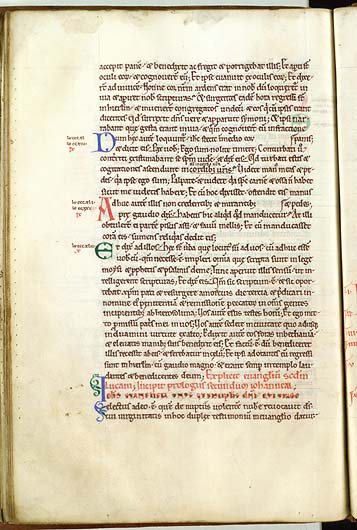 accepit panē & benedixit ac fregit & porrigebat illis; Et apti sť
oculi eoꝝ & cognoverunt eū; Et ipse evanuit ex oculis eoꝝ; Et dixeř
ad invicē; Nonne cor nr̄m ardens erat in nob̄ dū loqueret̄ in
via & aperiret nob̄ scripturas; Et surgentes eadē hora regressi sť
in hierlm̄ & invenerunt congregatos undeci & eos qui cū ipsis erant
dicentes qd̄ surrexit dn̄s vere & apparuit symoni; Et ipsi nar
rabant que gesta erant in via & qm̄ cognoverunt eū in fractione
Dum hec aut̄ loquunt̄ ihc stetit in medio eoꝝ panis;
& dicit eis; Pax vob̄; Ego sum nolite timere; Conturbati ū &
conterriti existimabant se spm̄ videre; & dixit eis; Quid turbati estis &
cogitationes ascendunt in corda vr̄a; Videte manus meas & pe
des qa ipse ego sum; Palpate & videte qa sps carnē & ossa n̄ habet
sicut me videtis habere; Et cū hoc dixisset ostendit eis manus
Adhuc aut̄ illis non credentib; & mirantib; & pedes;
pre gaudio dixit; Habetis hic aliqd qd manducetur; At illi
obtulerunt ei partē piscis assi & favū mellis; Et cū manducasset
corā eis sumens reliquias dedit eis;
Et dix̄ ad illos; Hec sť verba que locut̄ sū ad vos cū adhuc essē
vobiscū qm̄ necesse ē impleri omnia que scripta sunt in lege
moysi & pphetis & psalmis de me; Tunc aperuit illis sensū ut in
telligerent scripturas; Et dix̄ eis; Qm̄ sic scriptum ē & sic opor
tebat xpm̄ pati & resurgere a mortuis die tercia & pdicari in
nomine ei' penitentiā & remissionē peccatoꝝ in om̄s gentes
incipientib; ab hierosolima; Vos aut̄ estis testes horū; Et ego mit
to pmissū patris mei in vos; Vos aut̄ sedete in civitate quo adusq;
induamini virtute ex alto; Eduxit aut̄ eos foras in bethaniā
& elevatis manib; suis benedixit eis; Et factū ē dū benediceret
illis recessit ab eis & ferebat̄ in celū; Et ipsi adorantes eū regressi
sunt in hierlm̄ cū gaudio magno & erant semp in templo lau
dantes & benedicentes deum; Explicit evangliū scdm
Lucam; Incipit prologus secundum iohannem;